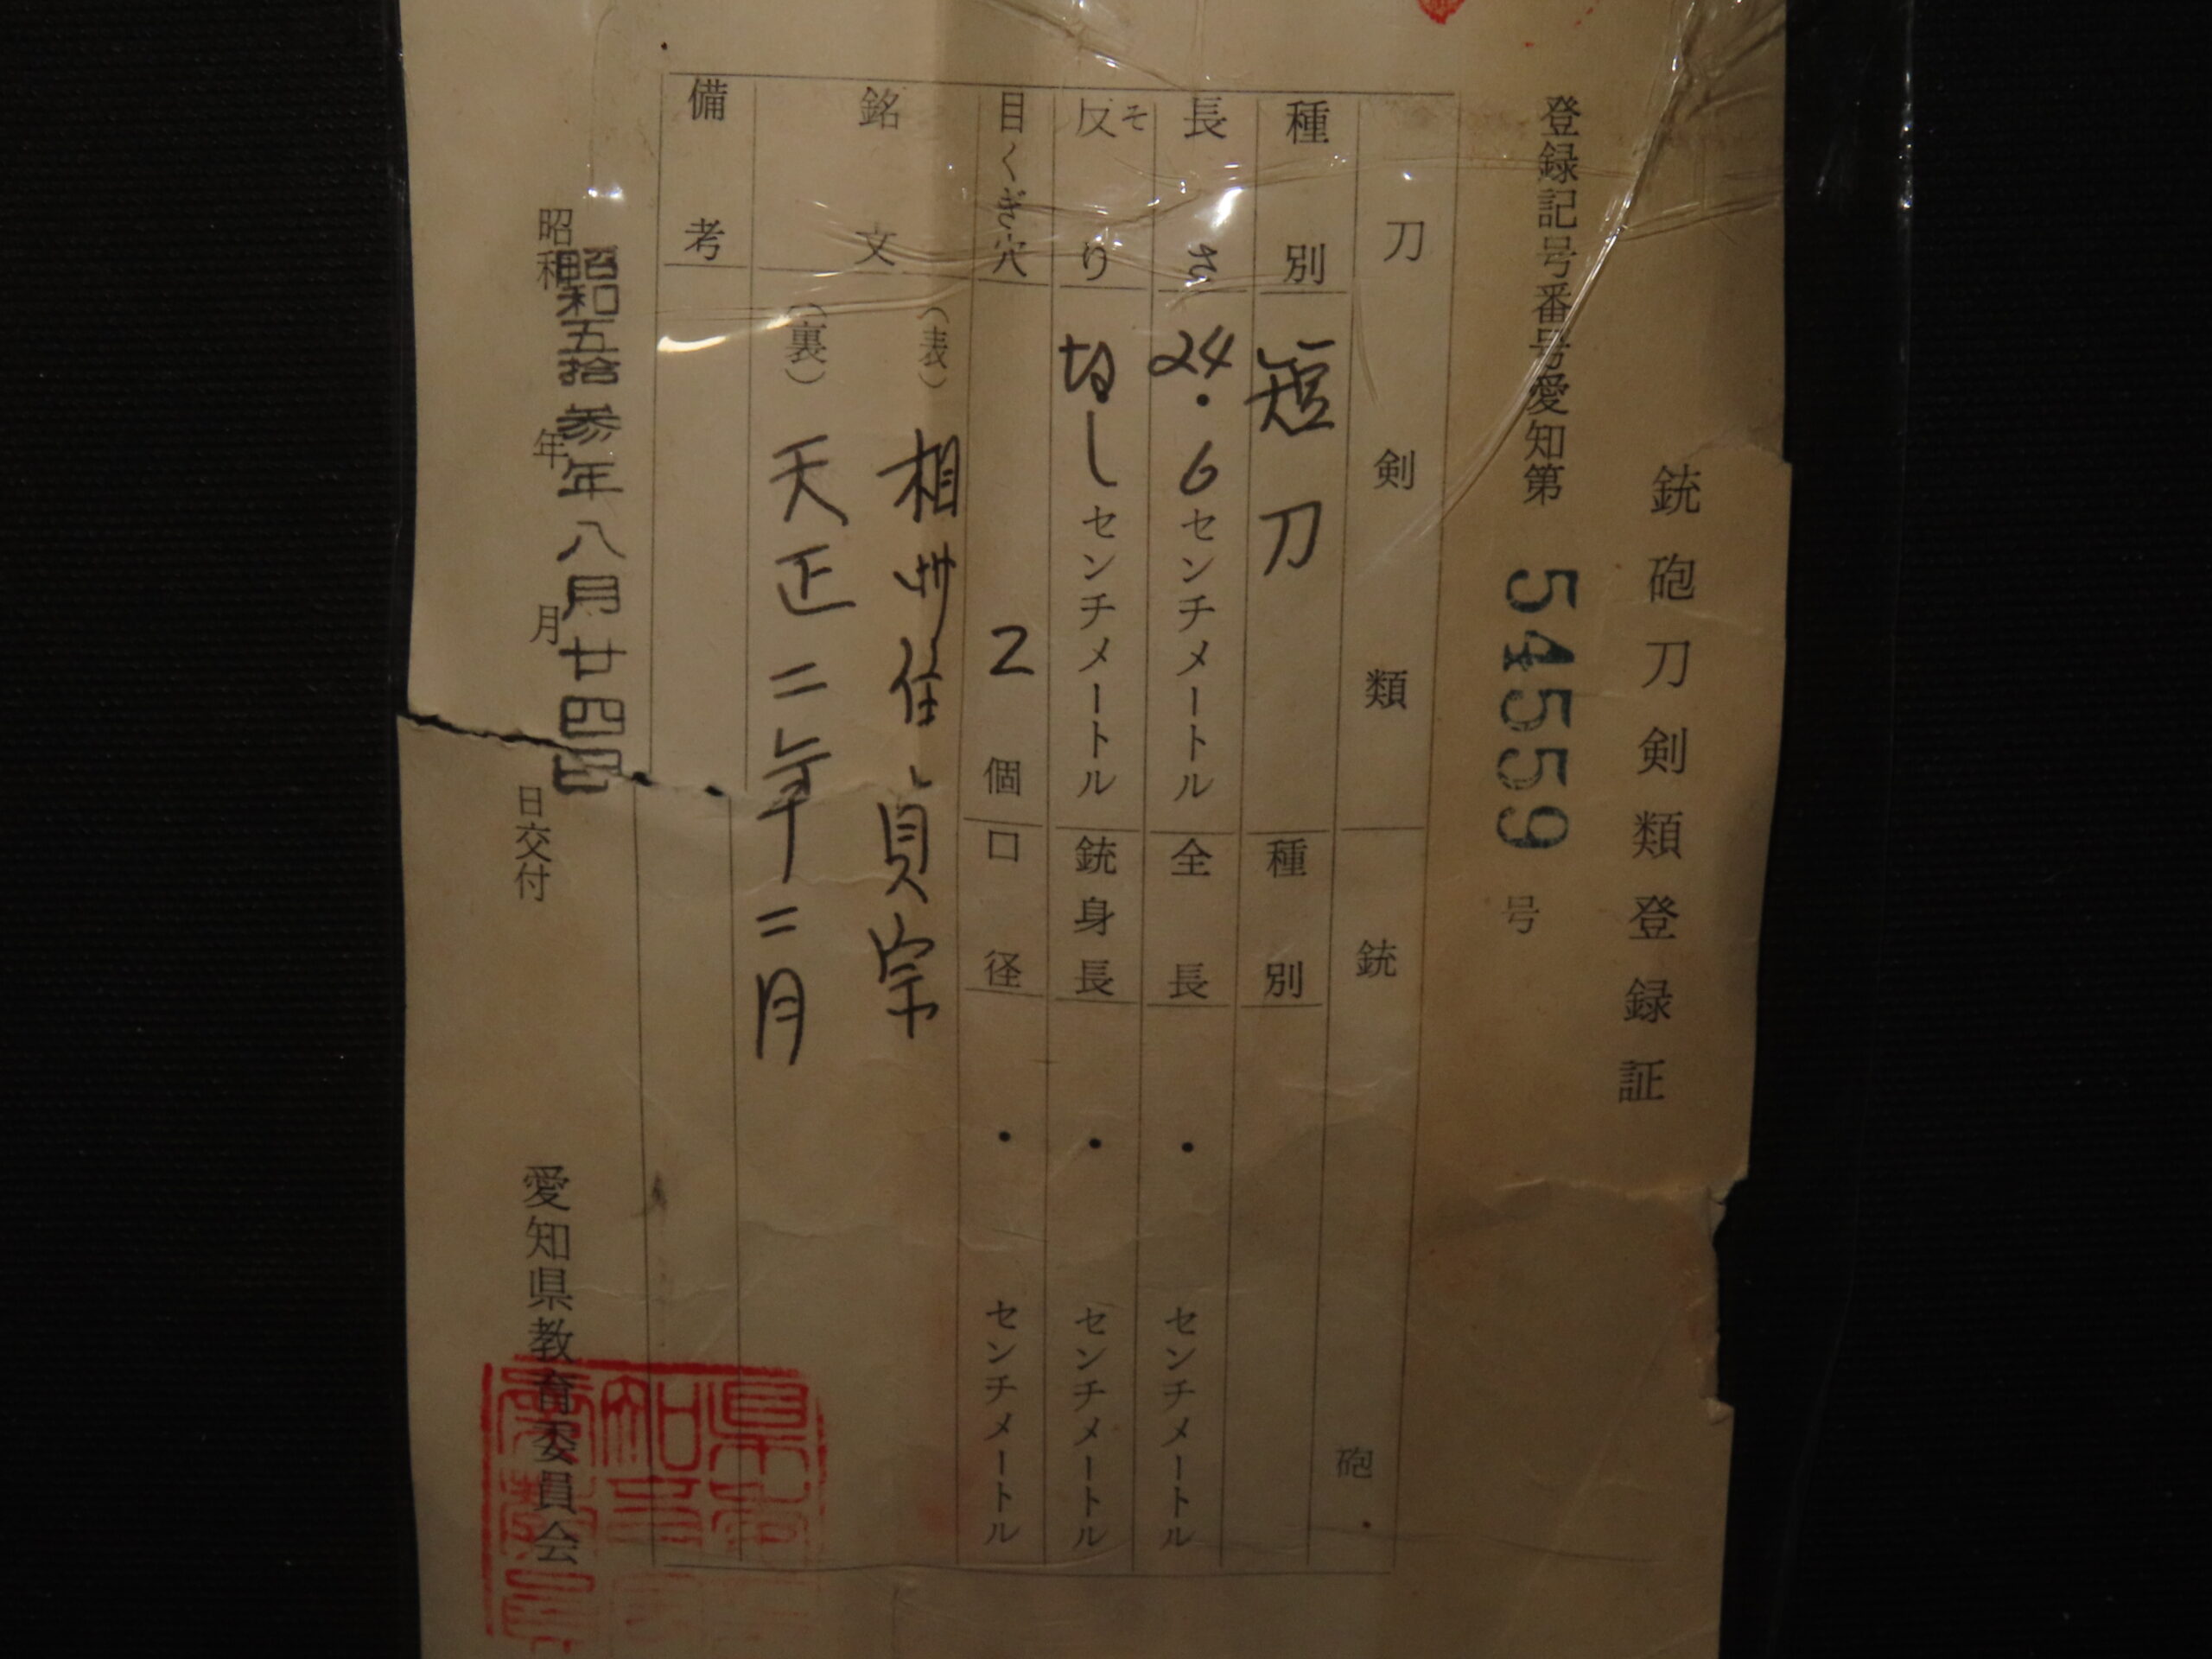 銃砲刀剣類登録証
登録記号番号愛知第 54559 号
刀剣類
銃砲
種別 短刀
種別
長さ 24.6 センチメートル
全長 ・ センチメートル
反り そ なし センチメートル
銃身長 ・ センチメートル
目くぎ穴 2 個
口径 ・ センチメートル
銘文
(表) 相州住貞宗
(裏) 天正二年二月
備考
昭和五拾参年八月廿四日
昭和 年 月 日交付
愛知県教育委員会